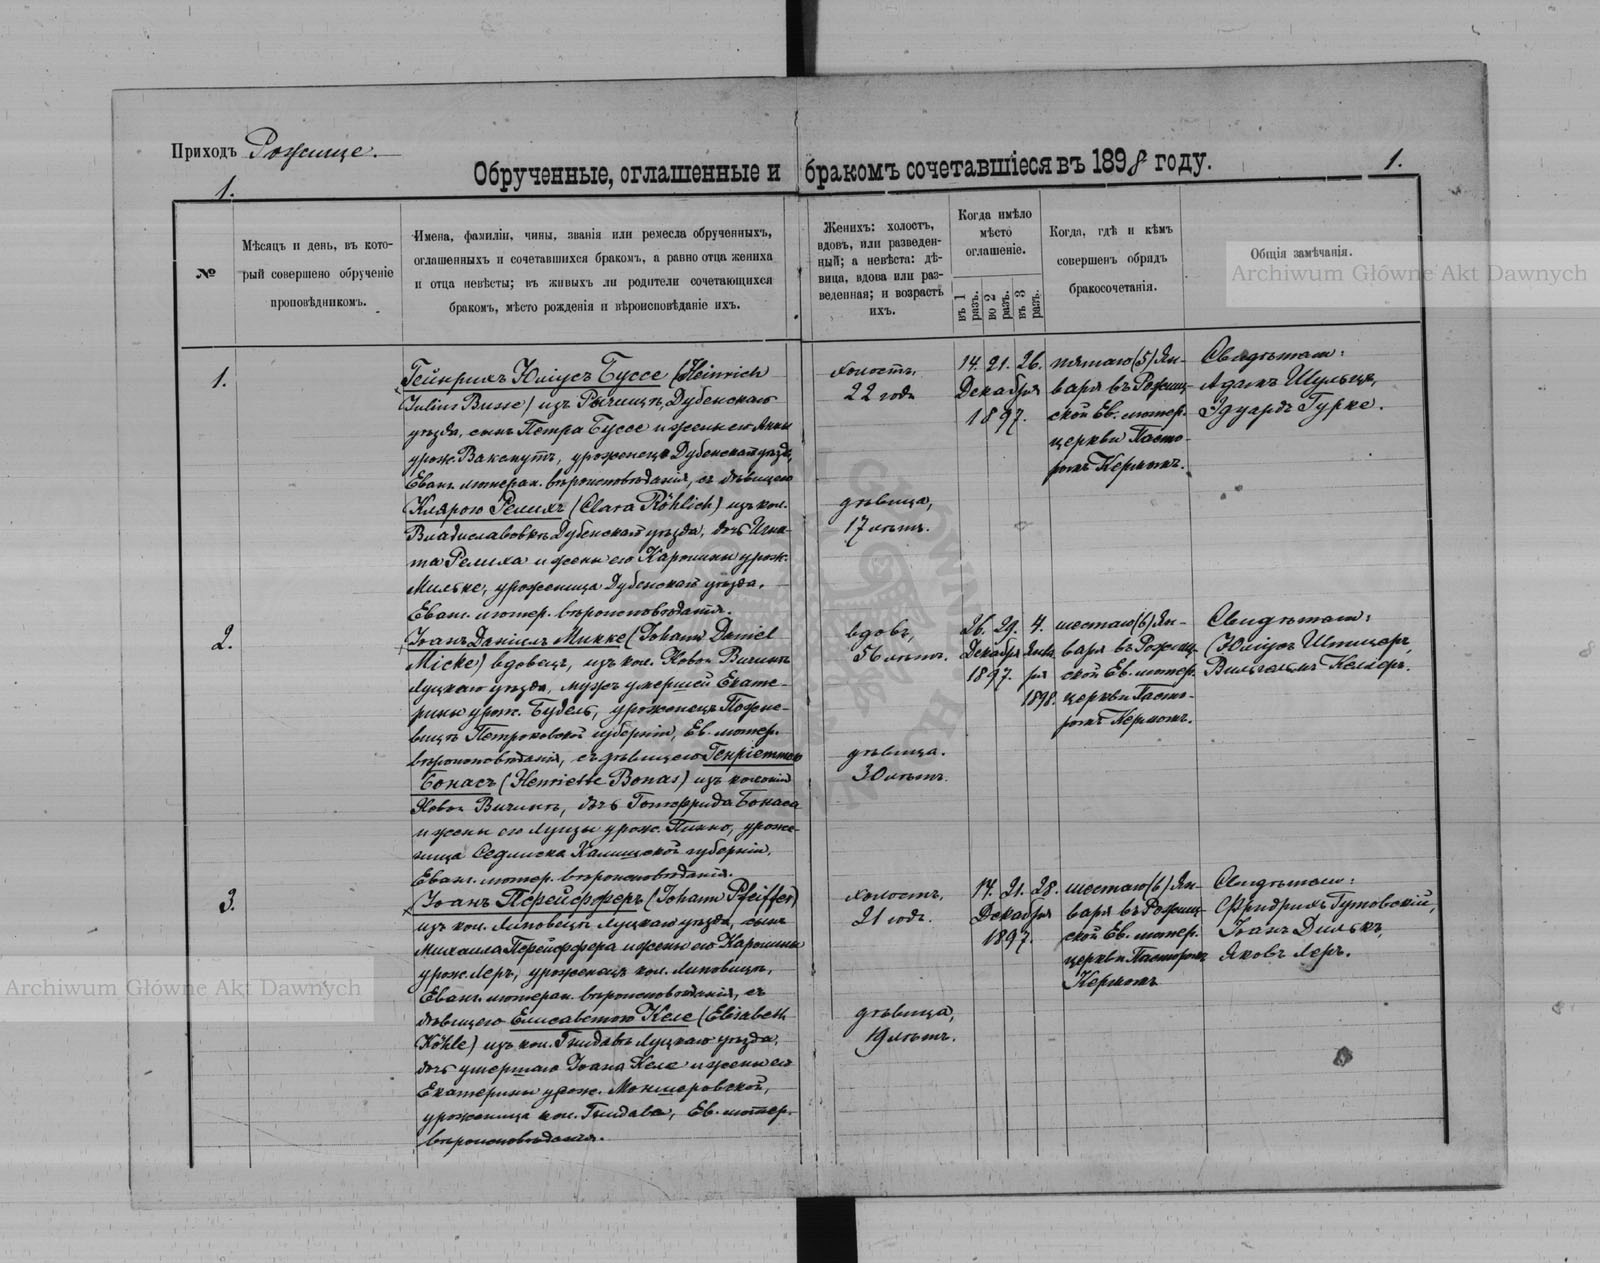 Приходъ Рожище.
Обрученные, оглашенные и бракомъ сочетавшіеся въ 1898 году.
1.
1.
№
Мѣсяцъ и день, въ кото-
рый совершено обрученіе
проповѣдникомъ.
Имена, фамиліи, чины, званія или ремесла обрученныхъ,
оглашенныхъ и сочетавшихся бракомъ, а равно отца жениха
и отца невѣсты; въ живыхъ ли родители сочетающихся
бракомъ, мѣсто рожденія и вѣроисповѣданіе ихъ.
Женихъ: холостъ,
вдовъ, или разведен-
ный; а невѣста: дѣ-
вица, вдова или раз-
веденная; и возрастъ
ихъ.
Когда имѣло
мѣсто
оглашеніе.
въ 1 разъ.
во 2 разъ.
въ 3 разъ.
Когда, гдѣ и кѣмъ
совершенъ обрядъ
бракосочетанія.
Общія замѣчанія.
Archiwum Główne Akt Dawnych
1.
Гейнрихъ Юліусъ Буссе (Heinrich
Julius Busse) изъ Дубенскаго
уѣзда, сынъ Петра Буссе и жены его Анны
урож. Вакмутъ, уроженецъ Дубенскаго уѣзда,
Еван. лютеран. вѣроисповѣданія, съ дѣвицею
Клярою Релихъ (Clara Röhlich) изъ кол.
Владиславовкъ Дубенскаго уѣзда, дочь Игна-
та Релиха и жены его Каролины урож.
Мильке, уроженица Дубенскаго уѣзда,
Еван. лютер. вѣроисповѣданія.
холостъ,
22 года
дѣвица,
17 лѣтъ.
14. 21. 26.
Декабря
1897.
пятаго (5) Ян-
варя въ Рожищ-
ской Ев. лютер.
церкви Пасто-
ромъ Кермомъ.
Свидѣтели:
Адамъ Шульцъ,
Эдуардъ Гурке.
2.
Іоанъ Даніилъ Микке (Johann Daniel
Micke) вдовецъ, изъ кол. Новой
Луцкаго уѣзда, мужъ умершей Екате-
рины урож. Будель, уроженецъ
Петроковской губерніи, Ев. лютер.
вѣроисповѣданія, съ дѣвицею Генріеттою
Бонасъ (Henriette Bonas) изъ колоніи
Новой дочь Готфрида Бонаса
и жены его Луизы урож. уроже-
ница Калишской губерніи,
Еван. лютер. вѣроисповѣданія.
вдовъ,
56 лѣтъ.
дѣвица.
30 лѣтъ.
26. 29. 4.
Декабря Янва
1897. ря
1898.
шестаго (6) Ян-
варя въ Рожищ-
ской Ев. лютер.
церкви Пасто-
ромъ Кермомъ.
Свидѣтели:
Юліусъ Шпицеръ,
Вильгельмъ Келлеръ.
3.
Іоанъ Пфейфферъ (Johann Pfeiffer)
изъ кол. Липовецъ Луцкаго уѣзда, сынъ
Михаила Пфейффера и жены его Каролины
урож. Леръ, уроженецъ кол. Липовецъ,
Еван. лютеран. вѣроисповѣданія, съ
дѣвицею Елисаветою Келе (Elisabeth
Köhle) изъ кол. Гнидавъ Луцкаго уѣзда,
дочь умершаго Іоана Келе и жены его
Екатерины урож.
уроженица кол. Гнидава, Ев. лютер.
вѣроисповѣданія.
холостъ,
21 годъ.
дѣвица,
19 лѣтъ.
14. 21. 28.
Декабря
1897.
шестаго (6) Ян-
варя въ Рожищ-
ской Ев. лютер.
церкви Пасторомъ
Кермомъ
Свидѣтели:
Фридрихъ Гутовскій,
Іоанъ Дилькъ,
Яковъ Леръ.
Archiwum Główne Akt Dawnych